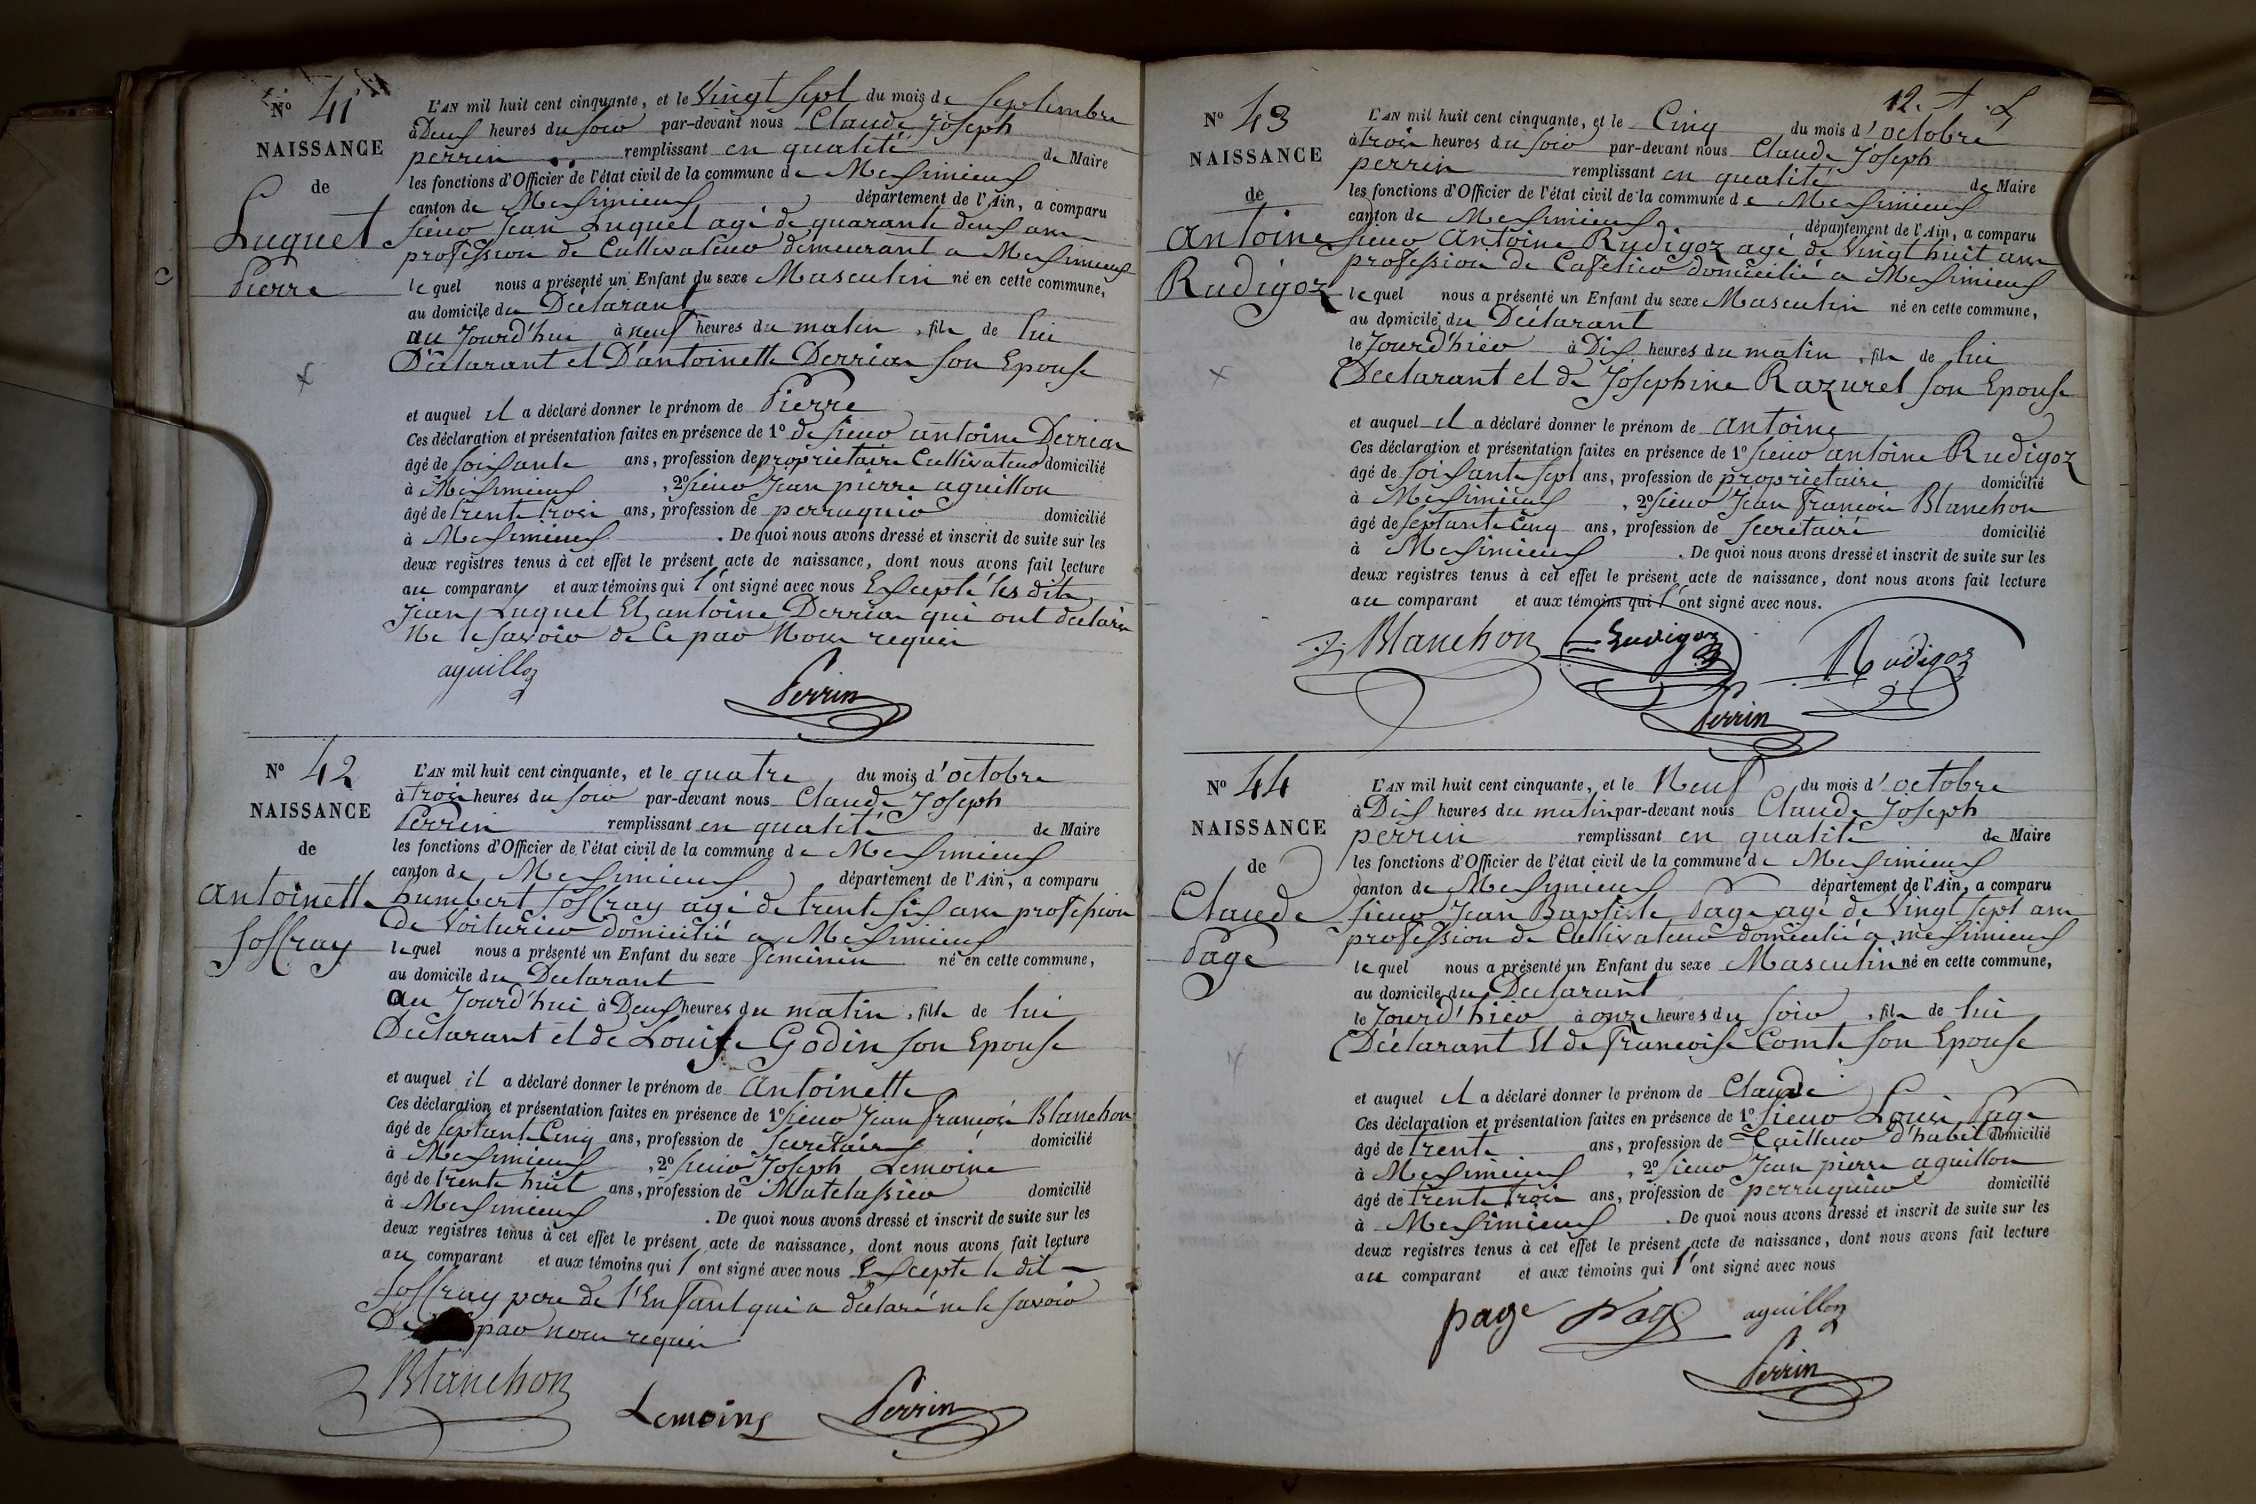 Nº 41
NAISSANCE
de
Luquet
Pierre
L'AN mil huit cent cinquante, et le Vingt Sept du mois de Septembre
à Deux heures du Soir par-devant nous Claude Joseph
perrin remplissant en qualité de Maire
les fonctions d'Officier de l'état civil de la commune de Meximieux
canton de Meximieux département de l'Ain, a comparu
Sieur Jean Luquet agé de quarante deux ans
profession de Cultivateur demeurant a Meximieux
lequel nous a présenté un Enfant du sexe Masculin né en cette commune,
au domicile du Déclarant
au Jourd'hui à neuf heures du matin, fils de lui
Déclarant et D'antoinette Derrias Son Epouse
et auquel il a déclaré donner le prénom de Pierre
Ces déclaration et présentation faites en présence de 1º de Sieur antoine Derrias
âgé de Soixante ans, profession de propriétaire Cultivateur domicilié
à Meximieux, 2º Sieur Jean pierre aguillon
âgé de trente trois ans, profession de perruquier domicilié
à Meximieux. De quoi nous avons dressé et inscrit de suite sur les
deux registres tenus à cet effet le présent acte de naissance, dont nous avons fait lecture
au comparant et aux témoins qui l'ont signé avec nous Excepté les dits
Jean Luquet Et antoine Derrias qui ont déclarés
Ne le Savoir de Ce par Nous requis
aguillon
Perrin
Nº 42
NAISSANCE
de
antoinette
Joffray
L'AN mil huit cent cinquante, et le quatre du mois d'octobre
à trois heures du Soir par-devant nous Claude Joseph
Perrin remplissant en qualité de Maire
les fonctions d'Officier de l'état civil de la commune de Meximieux
canton de Meximieux département de l'Ain, a comparu
humbert Joffray agé de trente Six ans profession
de Voiturier domicilié a Meximieux
lequel nous a présenté un Enfant du sexe féminin né en cette commune,
au domicile du Déclarant
au Jourd'hui à Deux heures du matin, fille de lui
Déclarant et de Louise Godin Son Epouse
et auquel il a déclaré donner le prénom de antoinette
Ces déclaration et présentation faites en présence de 1º Sieur Jean François Blanchon
âgé de Septante Cinq ans, profession de Secrétaire domicilié
à Meximieux, 2º Sieur Joseph Lemoine
âgé de trente huit ans, profession de Matelassier domicilié
à Meximieux. De quoi nous avons dressé et inscrit de suite sur les
deux registres tenus à cet effet le présent acte de naissance, dont nous avons fait lecture
au comparant et aux témoins qui l'ont signé avec nous Excepté le dit
Joffray père de l'Enfant qui a déclaré ne le Savoir
De par nous requis
Blanchon
Lemoine
Perrin
12. A. L
Nº 43
NAISSANCE
de
antoine
Rudigoz
L'AN mil huit cent cinquante, et le Cinq du mois d'octobre
à trois heures du Soir par-devant nous Claude Joseph
perrin remplissant en qualité de Maire
les fonctions d'Officier de l'état civil de la commune de Meximieux
canton de Meximieux département de l'Ain, a comparu
Sieur Antoine Rudigoz agé de Vingt huit ans
profession de Cafetier domicilié a Meximieux
lequel nous a présenté un Enfant du sexe Masculin né en cette commune,
au domicile du Déclarant
le Jourd'hier à Dix heures du matin, fils de lui
Déclarant et de Josephine Razurel Son Epouse
et auquel il a déclaré donner le prénom de antoine
Ces déclaration et présentation faites en présence de 1º Sieur antoine Rudigoz
âgé de Soixante Sept ans, profession de propriétaire domicilié
à Meximieux, 2º Sieur Jean François Blanchon
âgé de Septante Cinq ans, profession de Secrétaire domicilié
à Meximieux. De quoi nous avons dressé et inscrit de suite sur les
deux registres tenus à cet effet le présent acte de naissance, dont nous avons fait lecture
au comparant et aux témoins qui l'ont signé avec nous.
Blanchon
Rudigoz
Rudigoz
Perrin
Nº 44
NAISSANCE
de
Claude
Page
L'AN mil huit cent cinquante, et le Neuf du mois d'octobre
à Dix heures du matin par-devant nous Claude Joseph
perrin remplissant en qualité de Maire
les fonctions d'Officier de l'état civil de la commune de Meximieux
canton de Mexymieux département de l'Ain, a comparu
Sieur Jean Baptiste Page agé de Vingt Sept ans
profession de Cultivateur domicilié a meximieux
lequel nous a présenté un Enfant du sexe Masculin né en cette commune,
au domicile du Déclarant
le Jourd'hier à onze heures du Soir, fils de lui
Déclarant Et de françoise Comte Son Epouse
et auquel il a déclaré donner le prénom de Claude
Ces déclaration et présentation faites en présence de 1º Sieur Louis Page
âgé de trente ans, profession de Tailleur d'habits domicilié
à Meximieux, 2º Sieur Jean pierre aguillon
âgé de trente trois ans, profession de perruquier domicilié
à Meximieux. De quoi nous avons dressé et inscrit de suite sur les
deux registres tenus à cet effet le présent acte de naissance, dont nous avons fait lecture
au comparant et aux témoins qui l'ont signé avec nous
page
Page
aguillon
Perrin